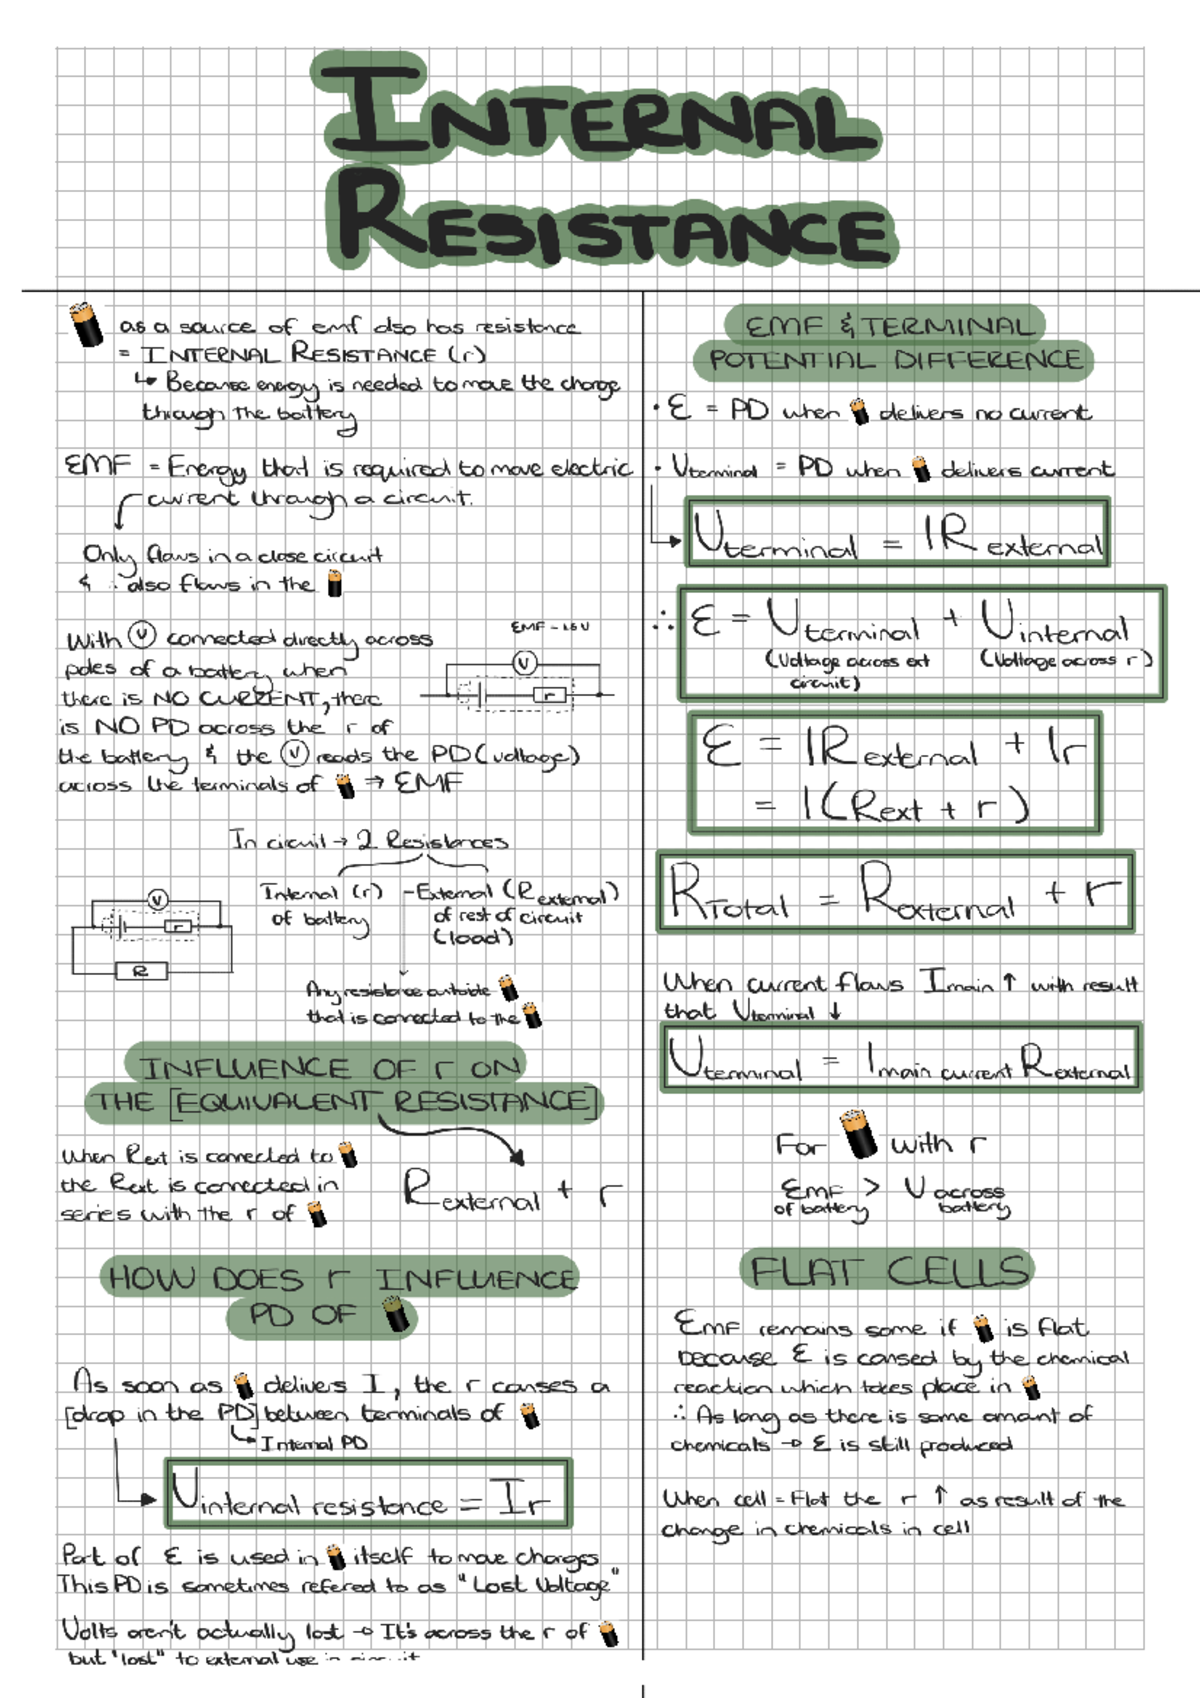 INTERNAL
RESISTANCE
as a source of emf also has resistance
= INTERNAL RESISTANCE (r)
↳ Because energy is needed to move the charge
through the battery
EMF = Energy that is required to move electric
current through a circuit.
Only flows in a close circuit
& ∴ also flows in the
With Ⓥ connected directly across
poles of a battery when
there is NO CURRENT, there
is NO PD across the r of
the battery & the Ⓥ reads the PD (voltage)
across the terminals of ⇒ EMF
EMF - 1.5V
V
r
In circuit → 2 Resistances
Internal (r)
of battery
- External (Rexternal)
of rest of circuit
(load)
V
r
R
Any resistance outside
that is connected to the
INFLUENCE OF r ON
THE [EQUIVALENT RESISTANCE]
When Rext is connected to
the Rext is connected in
series with the r of
Rexternal + r
HOW DOES r INFLUENCE
PD OF
As soon as delivers I, the r causes a
[drop in the PD] between terminals of
↳ Internal PD
Vinternal resistance = Ir
Part of ε is used in itself to move charges
This PD is sometimes refered to as "Lost Voltage"
Volts aren't actually lost → It's across the r of
but "lost" to external use in circuit
EMF & TERMINAL
POTENTIAL DIFFERENCE
• ε = PD when delivers no current
• Vterminal = PD when delivers current
Vterminal = IRexternal
∴ ε = Vterminal + Vinternal
(Voltage across ext
circuit)
(Voltage across r)
ε = IRexternal + Ir
= I(Rext + r)
RTotal = Rexternal + r
When current flows Imain ↑ with result
that Vterminal ↓
Vterminal = Imain current Rexternal
For with r
EMF > V across
of battery battery
FLAT CELLS
EMF remains same if is flat
because ε is caused by the chemical
reaction which takes place in
∴ As long as there is some amount of
chemicals → ε is still produced
When cell = Flat the r ↑ as result of the
change in chemicals in cell